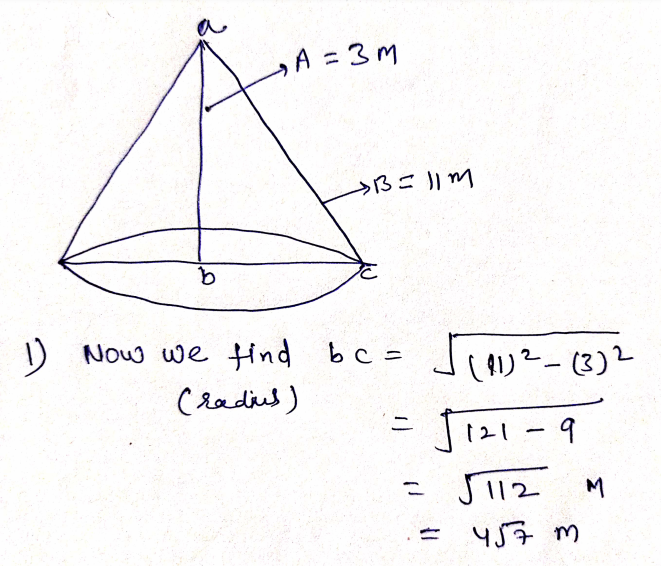 a
A = 3 M
B = 11 m
b
c
1) Now we find bc = √(11)² - (3)²
(radius)
= √121 - 9
= √112 M
= 4√7 m